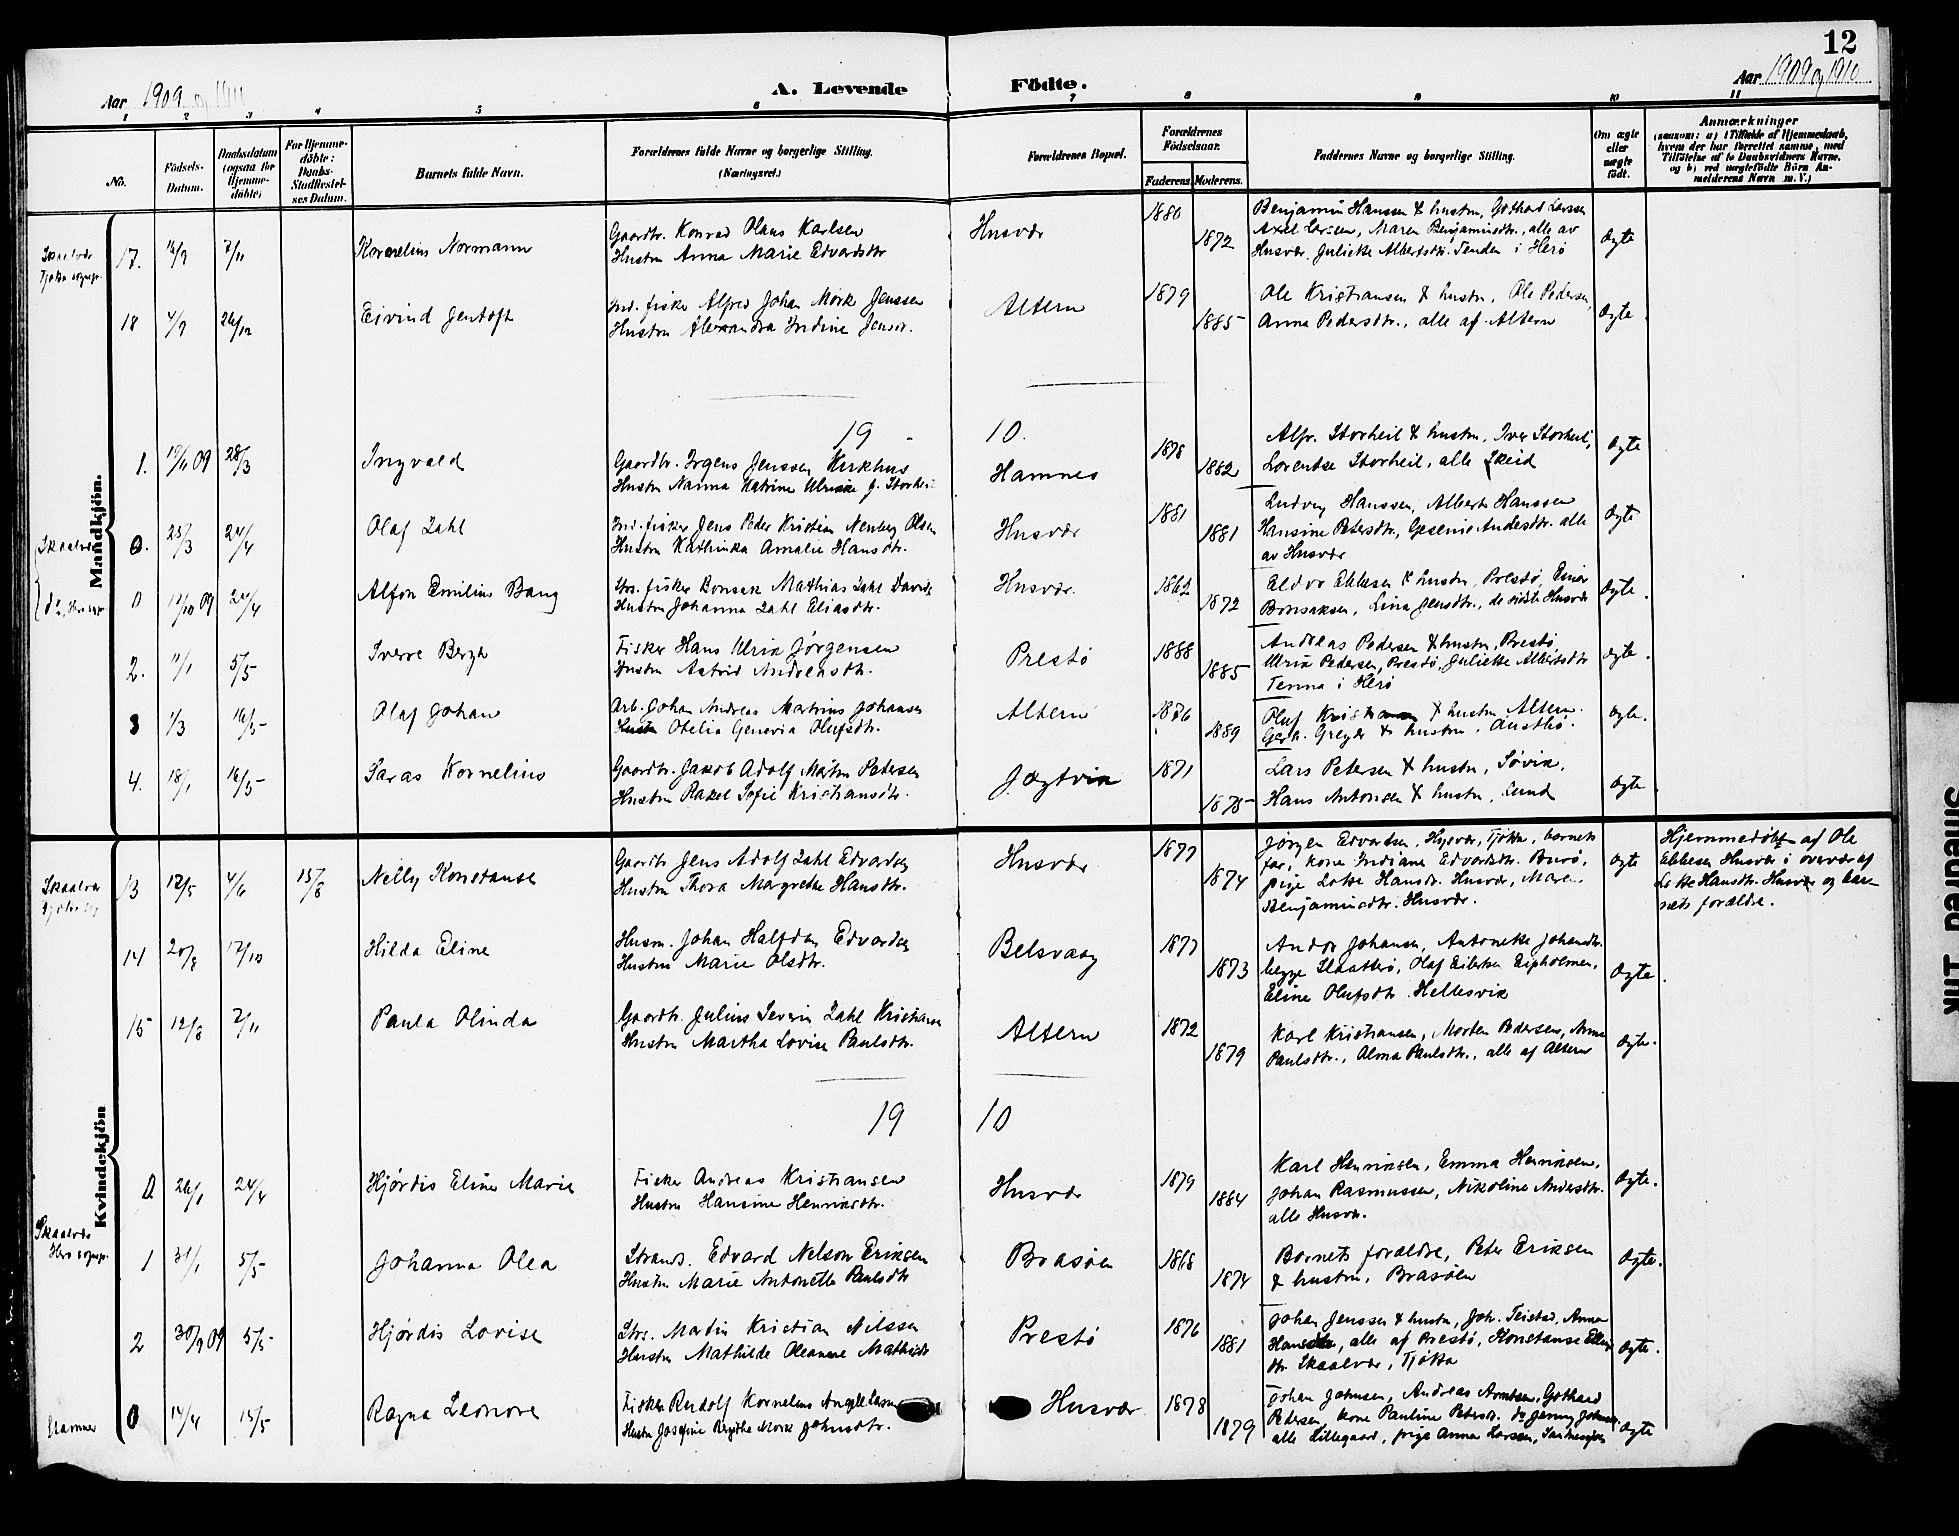 12
Aar 1909 og
A. Levende Födte.
Aar 1909 og 1910
1 2 3 4 5 6 7 8 9 10 11
No.
Födsels-Datum.
Daabsdatum (ogsaa for Hjemme-döbte)
For Hjemme-döbte: Daabs-Stadfæstel-ses Datum.
Barnets fulde Navn.
Forældrenes fulde Navne og borgerlige Stilling. (Næringsvei.)
Forældrenes Bopæl.
Forældrenes Födselsaar.
Faderens. Moderens.
Faddernes Navne og borgerlige Stilling.
Om ægte eller uægte födt.
Anmærkninger
(saasom: a) i Tilfælde af Hjemmedaab, hvem der har forrettet samme, med Tilföielse af to Daabsvidners Navne, og b) ved uægtefödte Börn An-melderens Navn m. V.)
Mandkjön.
17. 2/11 Kornelius Normann
Gaardbr. Konrad Olaus Karlsen
Hustru Anna Marie Edvardsdtr
Husvær 1880 1872
Benjamin Hanssen & hustru, Gothard Larssen
Axel Larsen, Maren Benjaminsdtr., alle av
Husvær. Juliette Albertsdtr. Tenden i Herö
Ægte
18 4/9 26/12 Eivind Jentoft
Ind. fisker Alfred Johan Mörk Jenssen
Hustru Alexandra Indine Jensdr.
Altern 1879 1885
Ole Kristiansen & hustru, Ole Pedersen,
Anna Pedersdtr., alle af Altern
Ægte.
19 10.
1. 09 28/3 Ingvald
Gaardbr. Jrgens Jenssen Kirkhus
Hustru Nanna Katrine Ulrikke f. Storheil
Hamnes 1878 1882
Alfr. Storheil & hustru, Iver Storheil,
Lorentse Storheil, alle Skeid
Ægte
0. 25/3 24/4 Olaf Zahl
Ind. fisker Jens Peder Kristian Nenberg Olsen
Hustru Kathinka Amalie Hansdtr.
Husvær 1881 1881
Ludvig Hanssen, Albert Hanssen
Hansine Petersdtr, Gesenie Andersdtr. alle
av Husvær
Ægte
0 12/10 09 24/4 Alfon Emilius Bang
Strs. fisker Bonsak Mathias Zahl Davids
Hustru Johanna Zahl Eliasdtr.
Husvær. 1862 1872
Eldor Ebbesen & hustru, Prestö, Einar
Bonsaksen, Lina Jensdtr., de sidste Husvær
Ægte.
2. 11/1 5/5 Sverre Bergh
Fisker Hans Ulrik Jørgensen
Hustru Astrid Andreasdtr.
Prestö 1888 1885
Andreas Pedersen & hustru, Prestö,
Ulrik Pedersen, Prestö, Juliette Albertsdtr
Tenna i Herö
Ægte.
3 1/3 16/5 Olaf Johan
Arb. Johan Andreas Martinus Johansen
Hustr Otelia Genevia Olufsdtr.
Altern 1876 1889
Oluf Kristiansen & hustru Altern.
Gerh. Greger & hustru, Austbö.
Ægte.
4. 18/1 16/5 Saras Kornelius
Gaardbr. Jakob Adolf Petersen
Hustru Rakel Sofie Kristiansdtr.
Jægtvik 1871 1875
Lars Petersen & hustru, Søvik,
Hans Antonsen & hustru, Lund
Ægte
Kvindekjön
13 12/5 4/6 15/8 Nelly Konstanse
Gaardbr Jens Adolf Zahl Edvardsen
Hustru Thora Margrethe Hansdtr.
Husvær 1877 1874
Jørgen Edvardsen, Husvær, Tjötta, barnets
far, kone Indiane Edvardsdtr. Burö,
pige Lotte Hansdtr. Husvær, Maren
Benjaminsdtr. Husvær.
Ægte
Hjemmedöbt af Ole
Ebbesen Husvær i overvær af
Lotte Hansdtr. Husvær og bar-
nets forældre.
14 20/8 17/10 Hilda Eline
Husm. Johan Halfdan Edvardsen
Hustru Marie Olsdtr.
Belsvaag 1877 1873
Andor Johansen, Antonette Johansdtr.
begge Slaatterö, Olaf Eilertsen Eipholmen,
Eline Olufsdtr. Hellesvik
Ægte.
15 12/8 7/11 Paula Olinda
Gaardbr. Julius Severin Zahl Kristiansen
Hustru Martha Lovise Paulsdtr.
Altern 1872 1879
Karl Kristiansen, Morten Pedersen, Anna
Paulsdtr., Alma Paulsdtr., alle af Altern
Ægte.
19 10
0 26/1 24/4 Hjördis Eline Marie
Fisker Andreas Kristiansen
Hustru Hansine Henriksdtr.
Husvær 1879 1884
Karl Henriksen, Emma Henriksen,
Johan Rasmussen, Nikoline Andersdtr.
alle Husvær.
Ægte.
Skaalvær
Herö sogn
1 31/1 5/5 Johanna Olea
Strands. Edvard Nelson Eriksen
Hustru Marie Antonette Paulsdtr
Brasöen 1868 1874
Barnets forældre, Peter Eriksen
& hustru, Brasöen
Ægte.
2 30/9 09 5/5 Hjördis Lovise
Strs. Martin Kristian Nilssen
Hustru Mathilde Oleanna Mathisdtr
Prestö 1876 1881
Johan Jenssen & hustru, Joh. Teistad, Anna
Hansdtr, alle af Prestö, Konstanse
dtr. Skaalvær, Tjötta
Ægte.
0 14/4 15/5 Ragna Leonore
Fisker Rudolf Kornelius
Hustru Josefine Bergitte Mörk Johnsdtr.
Husvær 1878 1879
Johan Johnsen, Andreas Arntsen, Gothard
Pedersen, kone Pauline Petersdtr. do Jenny Johnsdtr.
alle Lillegaard, pige Anna Larsen,
Ægte